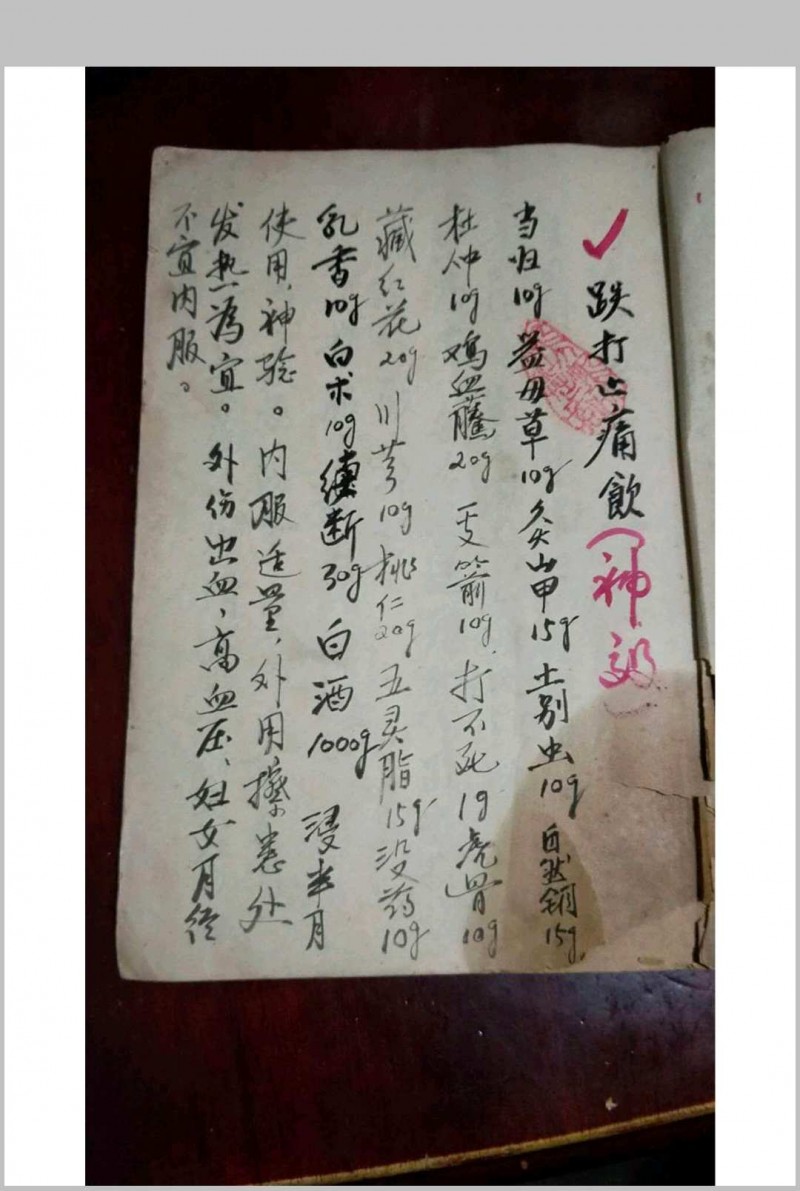 跌打止痛飲（神效）
当归10g 益母草10g 灸山甲15g 土别虫10g 自然铜15g
杜仲10g 鸡血藤20g 一支箭10g 打不死1g 虎骨10g
藏红花20g 川芎10g 桃仁20g 五灵脂15g 没药10g
乳香10g 白术10g 续断30g 白酒1000g 浸半月
使用，神验。内服适量，外用擦患处
发热为宜。外伤出血，高血压，妇女月经
不宜内服。